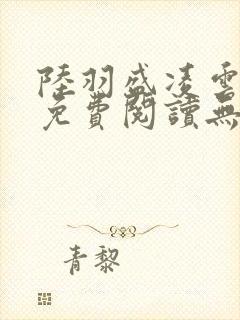 陸羽盛凌雲
免費閱讀無
青黎